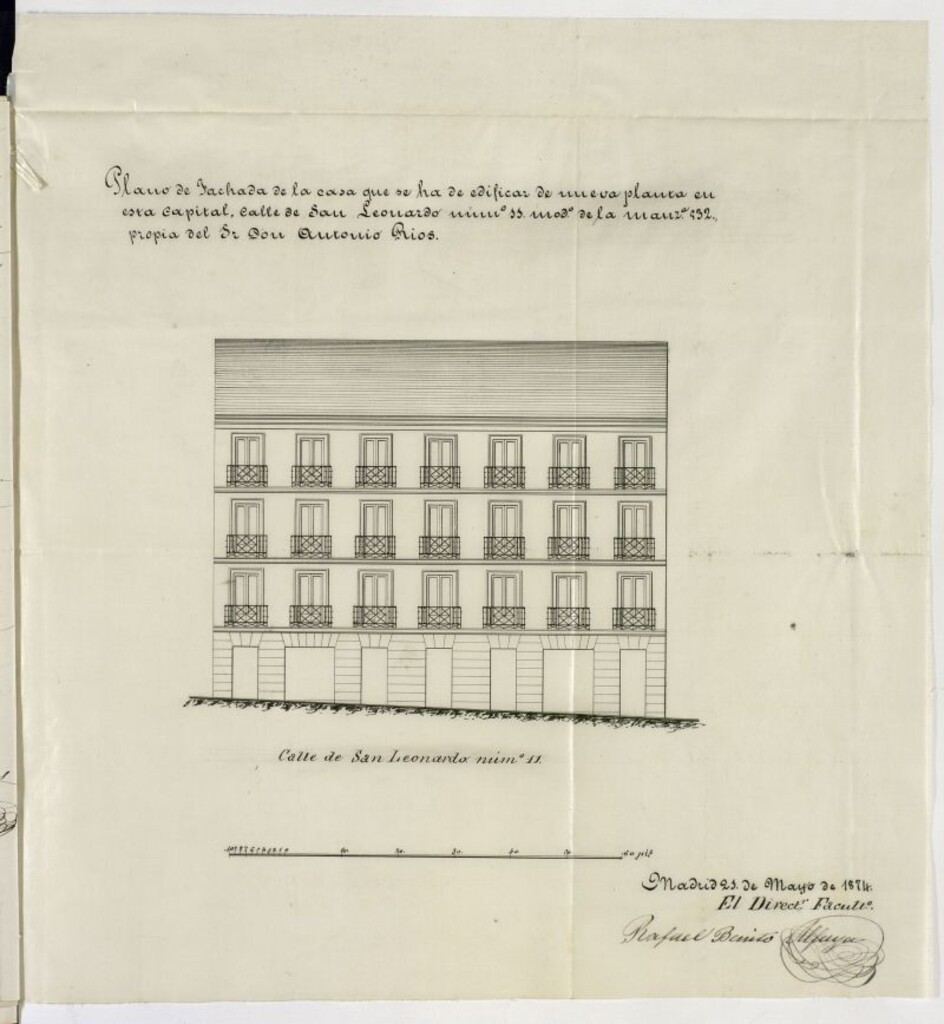 Plano de Fachada de la casa que se ha de edificar de nueva planta en
esta Capital, Calle de San Leonardo núm.º 11. mod.º de la manz.ª 532.,
propia del Sr Don Antonio Rios.
Calle de San Leonardo núm.º 11.
10 9 8 7 6 5 4 3 2 1 0 10. 20. 30. 40. 50. 60 piés
Madrid 21. de Mayo de 1874.
El Direct.r Facult.º
Rafael Benito Alfaya